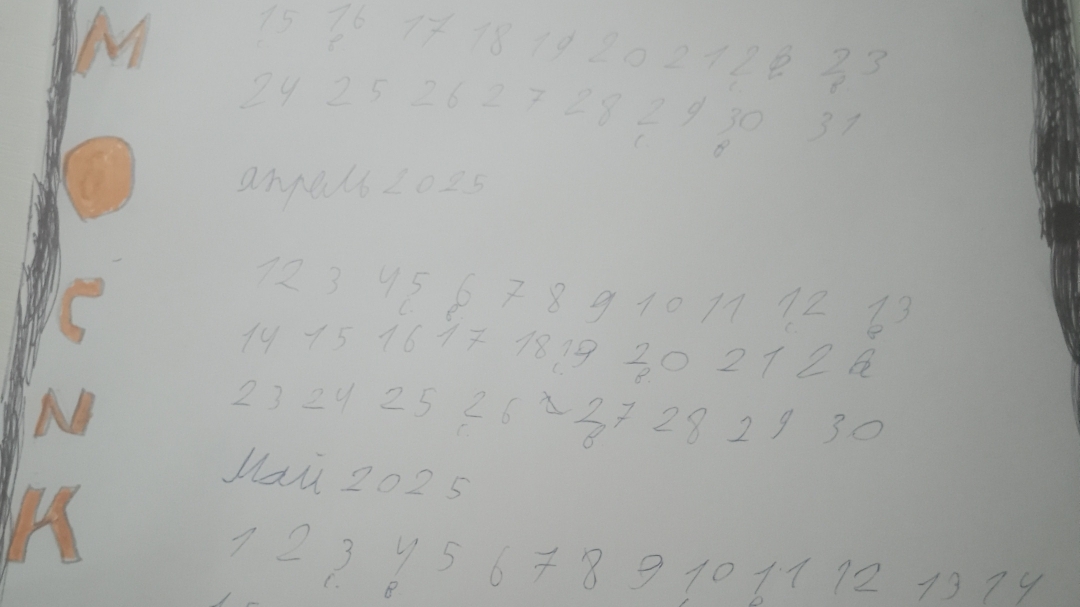 15 16 17 18 19 20 21 22 23
с в с в
24 25 26 27 28 29 30 31
с в
апрель 2025
1 2 3 4 5 6 7 8 9 10 11 12 13
с в с в
14 15 16 17 18 19 20 21 22
с в
23 24 25 26 27 28 29 30
с в
Май 2025
1 2 3 4 5 6 7 8 9 10 11 12 13 14
с в с в
15
М
О
С
N
К